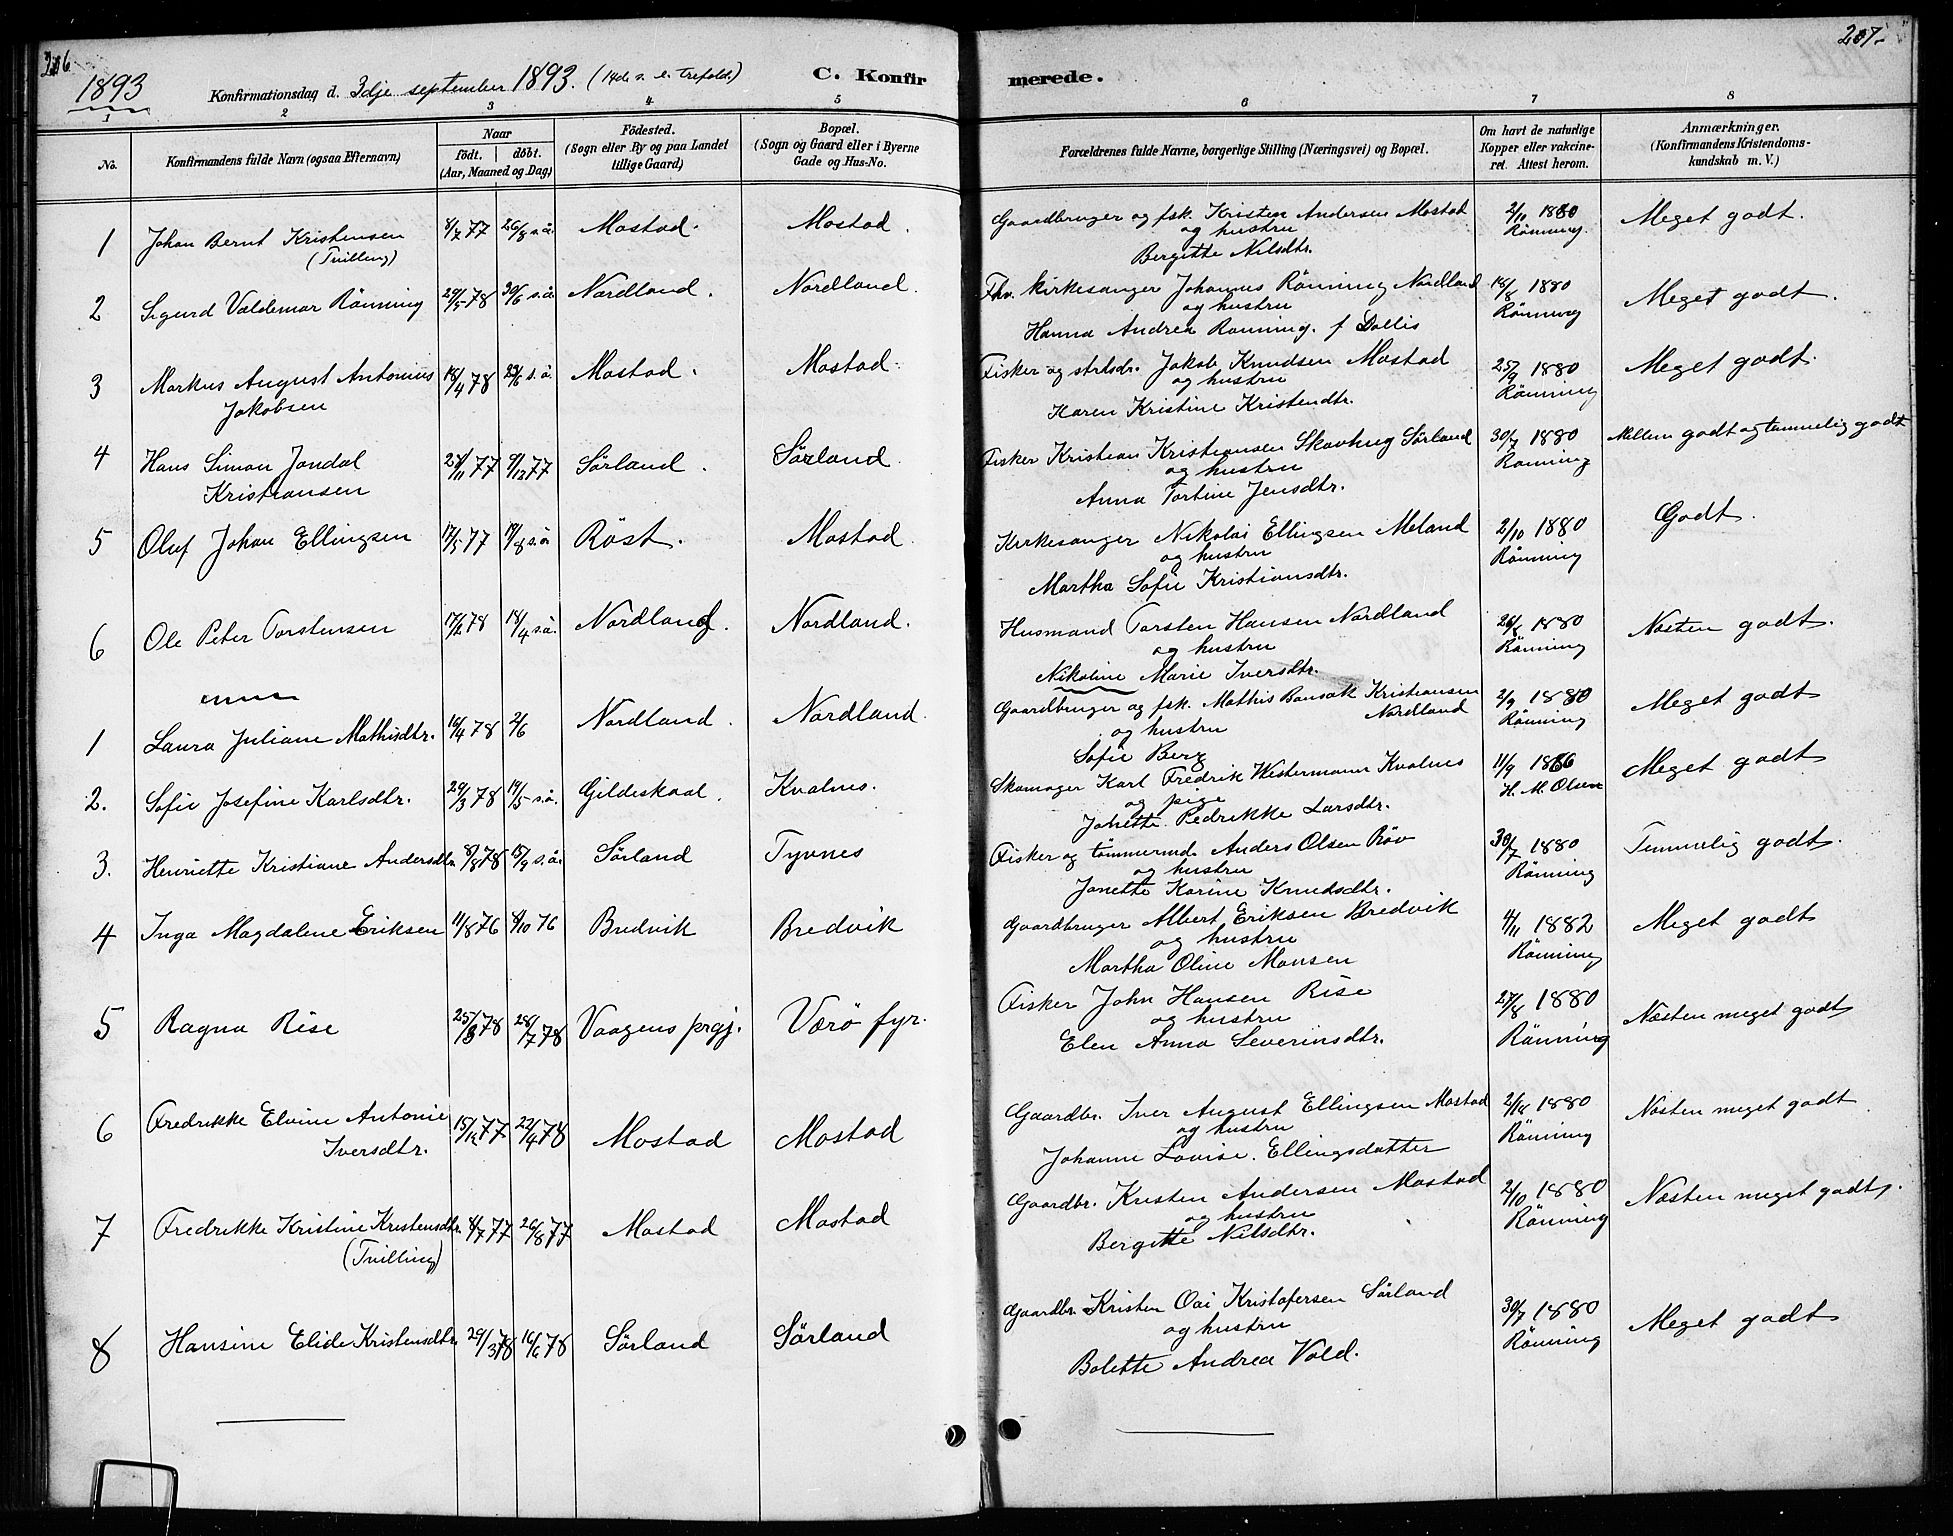 206
207-
1893
Konfirmationsdag d. 3dje september 1893. (14de s. e. trefold.) C. Konfirmerede.
1 2 3 4 5 6 7 8
No.
Konfirmandens fulde Navn (ogsaa Efternavn)
Naar
födt. döbt.
(Aar, Maaned og Dag)
Födested.
(Sogn eller By og paa Landet
tillige Gaard)
Bopæl.
(Sogn og Gaard eller i Byerne
Gade og Hus-No.
Forældrenes fulde Navne, borgerlige Stilling (Næringsvei) og Bopæl.
Om havt de naturlige
Kopper eller vakcine-
ret. Attest herom.
Anmærkninger.
(Konfirmandens Kristendoms-
kundskab m. V.)
1 Johan Bernt Kristensen 8/7 77 26/8 s.å. Mostad. Mostad. Gaardbruger og fsk. Kristen Andersen Mostad 2/10 1880 Meget godt.
(Tvilling) og hustru Rönning.
Bergitte Nilsdtr.
2 Sigurd Valdemar Rönning 29/5 78 30/6 s.å. Nordland. Nordland. Fhv. kirkesanger Johannes Rönning Nordland 14/8 1880 Meget godt.
og hustru Rönning
Hanna Andrea Rönning. f Dolles
3 Markus August Antonius 18/4 78 29/6 s.å. Mostad. Mostad. Fisker og strdsdr. Jakob Knudsen Mostad 25/9 1880 Meget godt.
Jakobsen og hustru Rönning
Karen Kristine Kristendtr.
4 Hans Simon Jondal 27/11 77 9/12 77 Sörland. Sörland. Fisker Kristian Kristiansen Skavhug Sörland 30/7 1880 Mellem godt og temmelig godt
Kristiansen og hustru Rönning
Anna Tortine Jensdtr.
5 Oluf Johan Ellingsen 17/5 77 19/8 s.å. Röst. Mostad. Kirkesanger Nikolai Ellingsen Meland 2/10 1880 Godt.
og hustru Rönning
Martha Sofie Kristiansdtr.
6 Ole Peter Torstensen 17/2 78 18/4 s.å. Nordland. Nordland. Husmand Torsten Hansen Nordland 26/8 1880 Næsten godt.
og hustru Rönning
Nikoline Marie Iversdtr.
1 Laura Juliane Mathisdtr. 16/4 78 2/6 Nordland. Nordland. Gaardbruger og fsk. Mathis Bansak Kristiansen 2/9 1880 Meget godt
og hustru Nordland Rönning
Sofie Berg
2. Sofie Josefine Karlsdtr. 29/3 78 19/5 s.å. Gildeskaal. Kvalnes. Skomager Karl Fredrik Westermann Kvalnes 11/9 1886 Meget godt
og pige H. M. Olsen
Johette Pedrikke Larsdtr.
3. Henriette Kristiane Andersdtr 8/8 78 15/9 s.å. Sörland Tyvnes Fisker og tömmermd. Anders Olsen Röv 30/7 1880 Temmelig godt.
og hustru Rönning
Jonette Karine Knudsdtr.
4 Inga Magdalene Eriksen 11/8 76 8/10 76 Bredvik Bredvik Gaardbruger Albert Eriksen Bredvik 4/11 1882 Meget godt
og hustru Rönning
Martha Oline Monsen
5 Ragna Rise 25/3 78 28/7 78 Vaagens prgj. Værö fyr. Fisker John Hansen Rise 27/8 1880 Næsten meget godt
og hustru Rönning
Elen Anna Severinsdtr.
6 Fredrikke Elvine Antonie 15/12 77 22/4 78 Mostad Mostad Gaardbr. Iver August Ellingsen Mostad 2/10 1880 Næsten meget godt.
Iversdtr. og hustru Rönning
Johanne Lovise. Ellingsdatter
7 Fredrikke Kristine Kristensdtr. 8/7 77 26/8 77 Mostad Mostad Gaardbr. Kristen Andersen Mostad 2/10 1880 Næsten meget godt.
(Tvilling) og hustru Rönning
Bergitte Nilsdtr.
8 Hansine Elide Kristensdtr 29/3 78 16/6 78 Sörland Sörland Gaardbr. Kristen Oai Kristofersen Sörland 30/7 1880 Meget godt
og hustru Rönning
Bolette Andrea Vold.